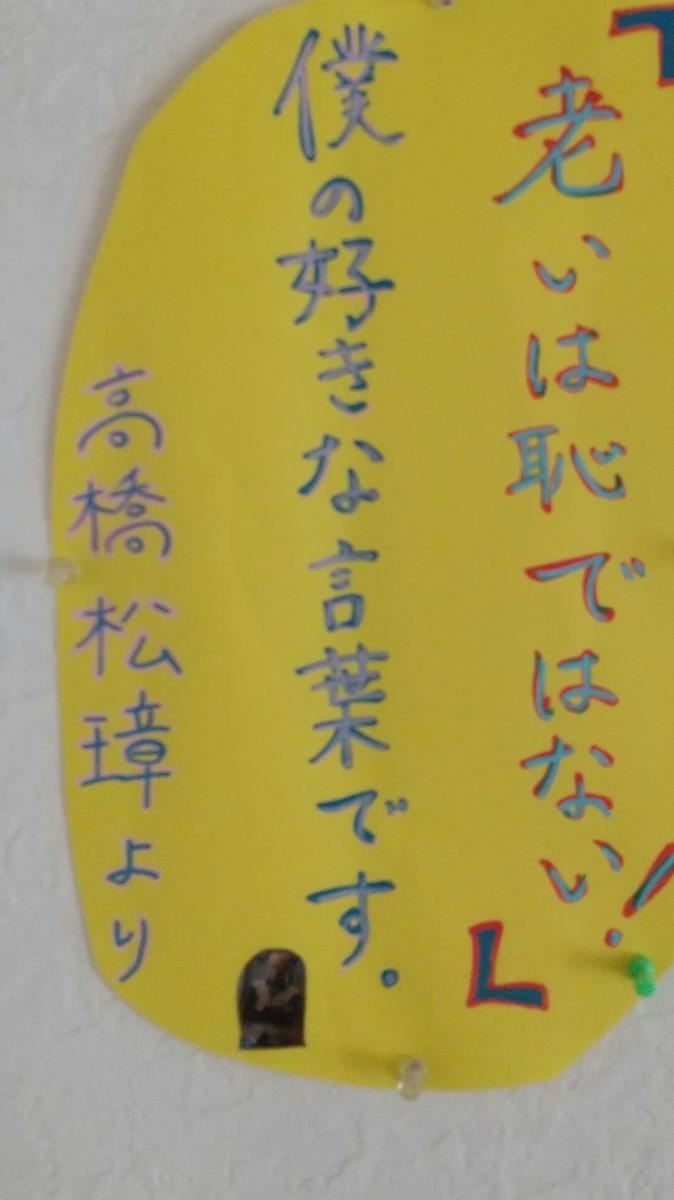 「老いは恥ではない!」
僕の好きな言葉です。
高橋松璋より